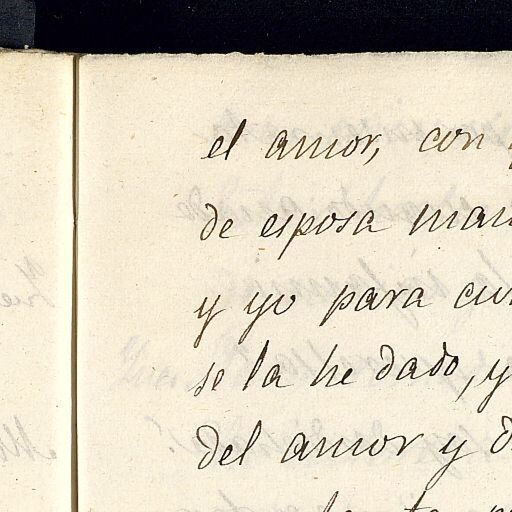 el amor, con
de esposa
y yo para
se la he dado, y
del amor y